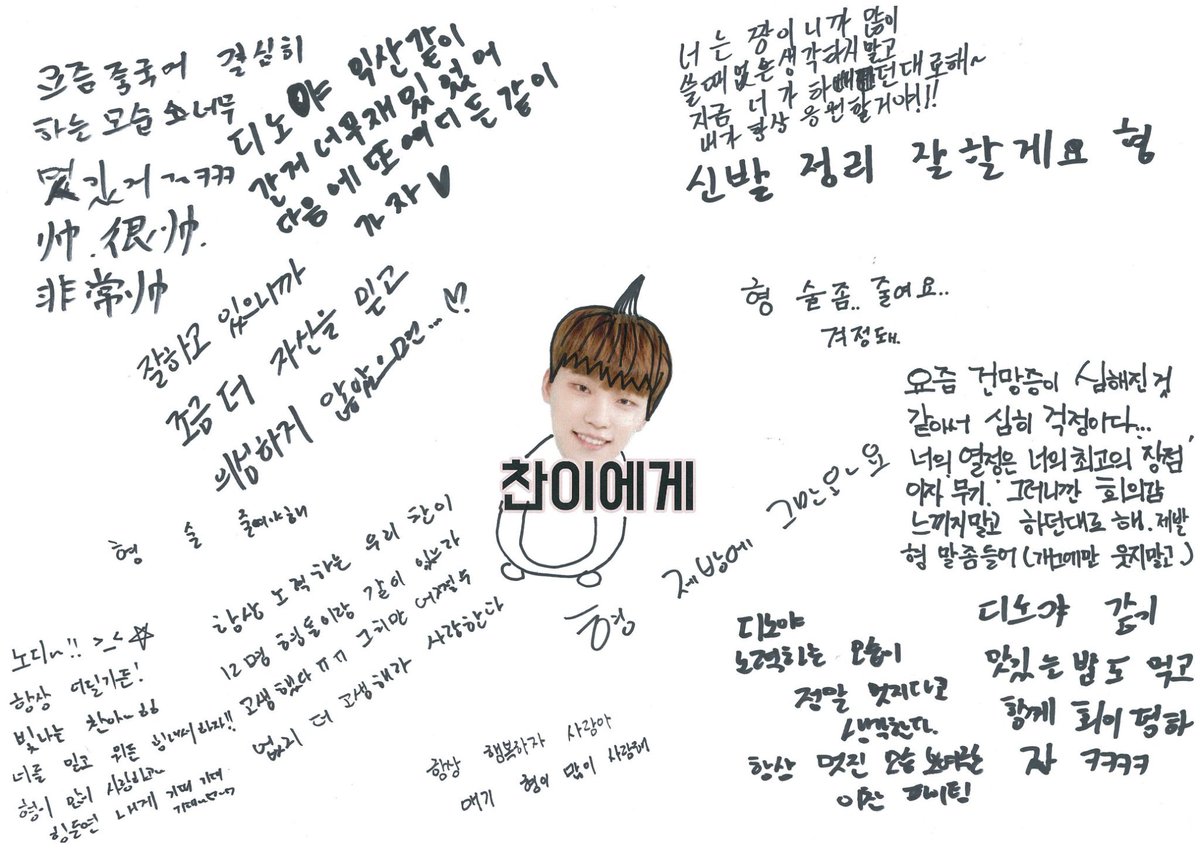 크즘 중국어 결심히
하는 모습 너무
멌있거~ㅋㅋㅋ
帅.很帅.
非常帅
디노야 익산같이
간게 너무재밌었어
다음에 또 어디든 같이
가자♥
너는 짱이니까 많이
쓸때없은 생각하지말고
지금 너가 하던대로해~
내가 항상 응원할거야!!!
신발 정리 잘할게요 형
잘하고 있으니까
조금 더 자신을 믿고
의심하지 않았으면...♡
형 술좀.. 줄여요..
걱정돼.
찬이에게
요즘 건망증이 심해진것
같아서 심히 걱정이다...
너의 열정은 너의 최고의 장점
이자 무기. 그러니깐 회의감
느끼지말고 하던대로 해. 제발
형 말좀들어 (개그에만 웃지말고)
형 술 줄여야해
형 제방에 그만오~요
항상 노력하는 우리 찬이
12명 형들이랑 같이 있는라
고생했다ㅠㅠ 그치만 어쩔수
없리 더 고생해라 사랑한다
노디~!! >_< ☆
항상 어딜가든!
빛나는 찬아~ㅎㅎ
너를 믿고 뭐든 힘내서하자!!
형이 많이 사랑하고~
힘들면 내게 기대 기대
항상 행복하자 사랑아
애기 형이 많이 사랑해
디노야
노력하는 모습이
정말 멋지다고
생각한다.
항상 멋진 모습 보여줄
이찬 파이팅!
디노야 같이
맛있는 밥도 먹고
함께 회이팅하
자 ㅋㅋㅋㅋ